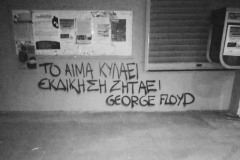 ΤΟ ΑΙΜΑ ΚΥΛΑΕΙ
ΕΚΔΙΚΗΣΗ ΖΗΤΑΕΙ
GEORGE FLOYD